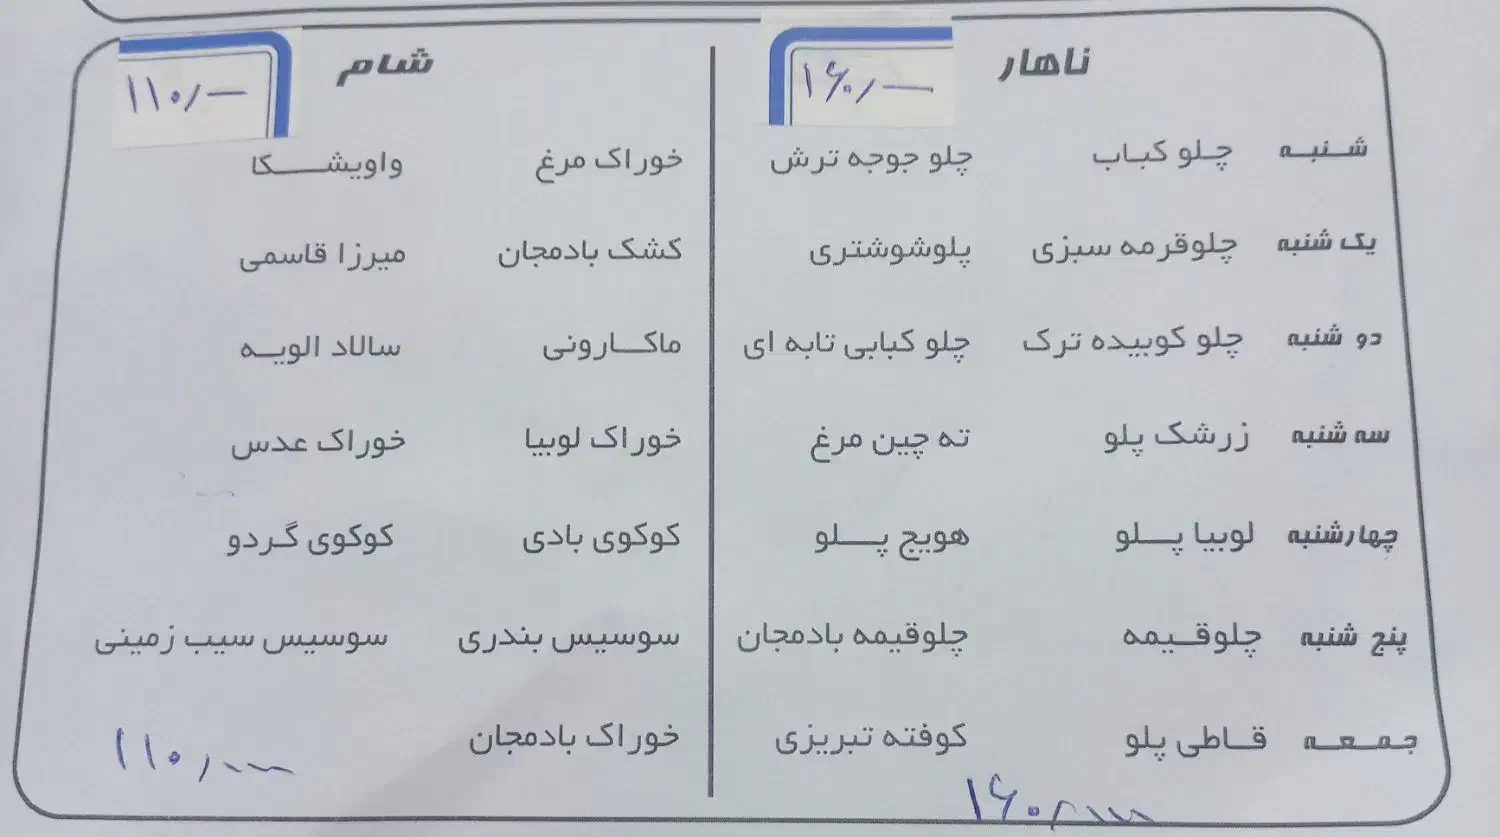 ناهار ۱۶۰/— شام ۱۱۰/—
شنبه چلو کباب چلو جوجه ترش خوراک مرغ واویشکا
یک شنبه چلوقرمه سبزی پلوشوشتری کشک بادمجان میرزا قاسمی
دو شنبه چلو کوبیده ترک چلو کبابی تابه ای ماکارونی سالاد الویه
سه شنبه زرشک پلو ته چین مرغ خوراک لوبیا خوراک عدس
چهارشنبه لوبیا پلو هویج پلو کوکوی بادی کوکوی گردو
پنج شنبه چلوقیمه چلوقیمه بادمجان سوسیس بندری سوسیس سیب زمینی
جمعه قاطی پلو کوفته تبریزی خوراک بادمجان
۱۶۰/۰۰۰ ۱۱۰/۰۰۰